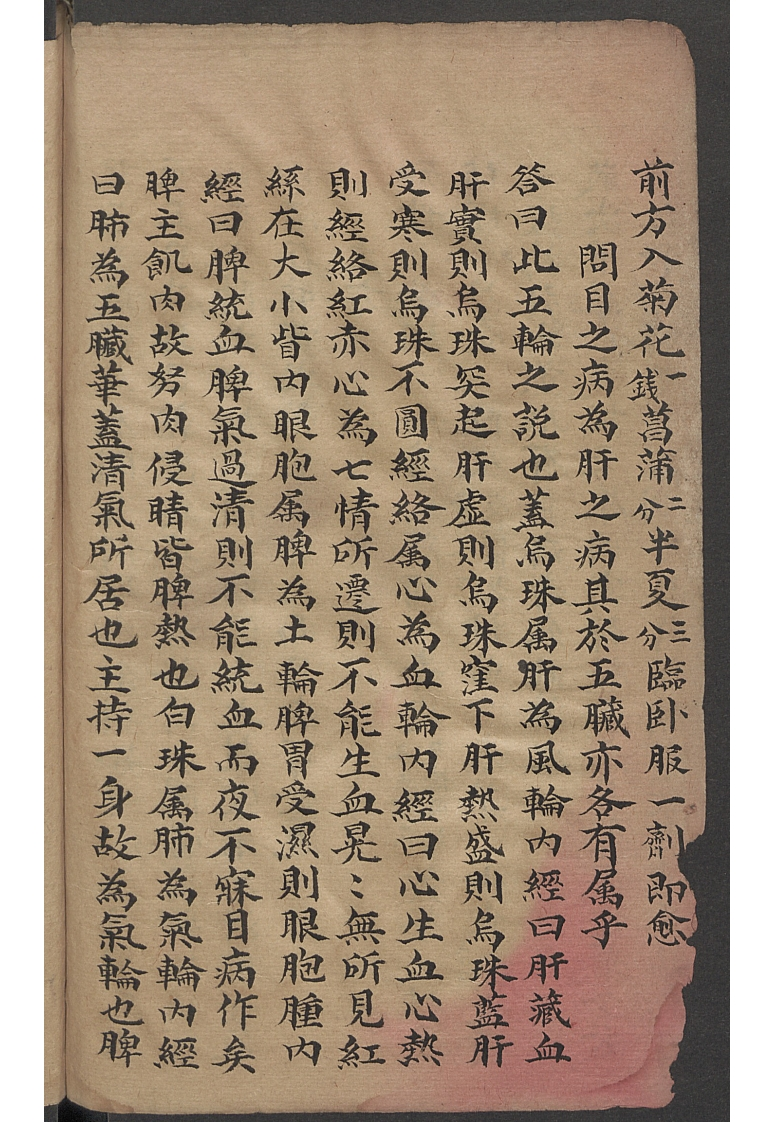 前方入菊花一錢菖蒲二分半夏三分臨卧服一劑即愈
問目之病為肝之病其於五臟亦各有属乎
答曰此五輪之説也蓋烏珠属肝為風輪内經曰肝藏血
肝實則烏珠突起肝虚則烏珠窪下肝熱盛則烏珠藍肝
受寒則烏珠不圓經絡属心為血輪内經曰心生血心熱
則經絡紅赤心為七情所遷則不能生血晃〻無所見紅
絲在大小眥内眼胞属脾為土輪脾胃受濕則眼胞腫内
經曰脾統血脾氣過清則不能統血而夜不寐目病作矣
脾主飢肉故努肉侵睛皆脾熱也白珠属肺為氣輪内經
曰肺為五臟華蓋清氣所居也主持一身故為氣輪也脾